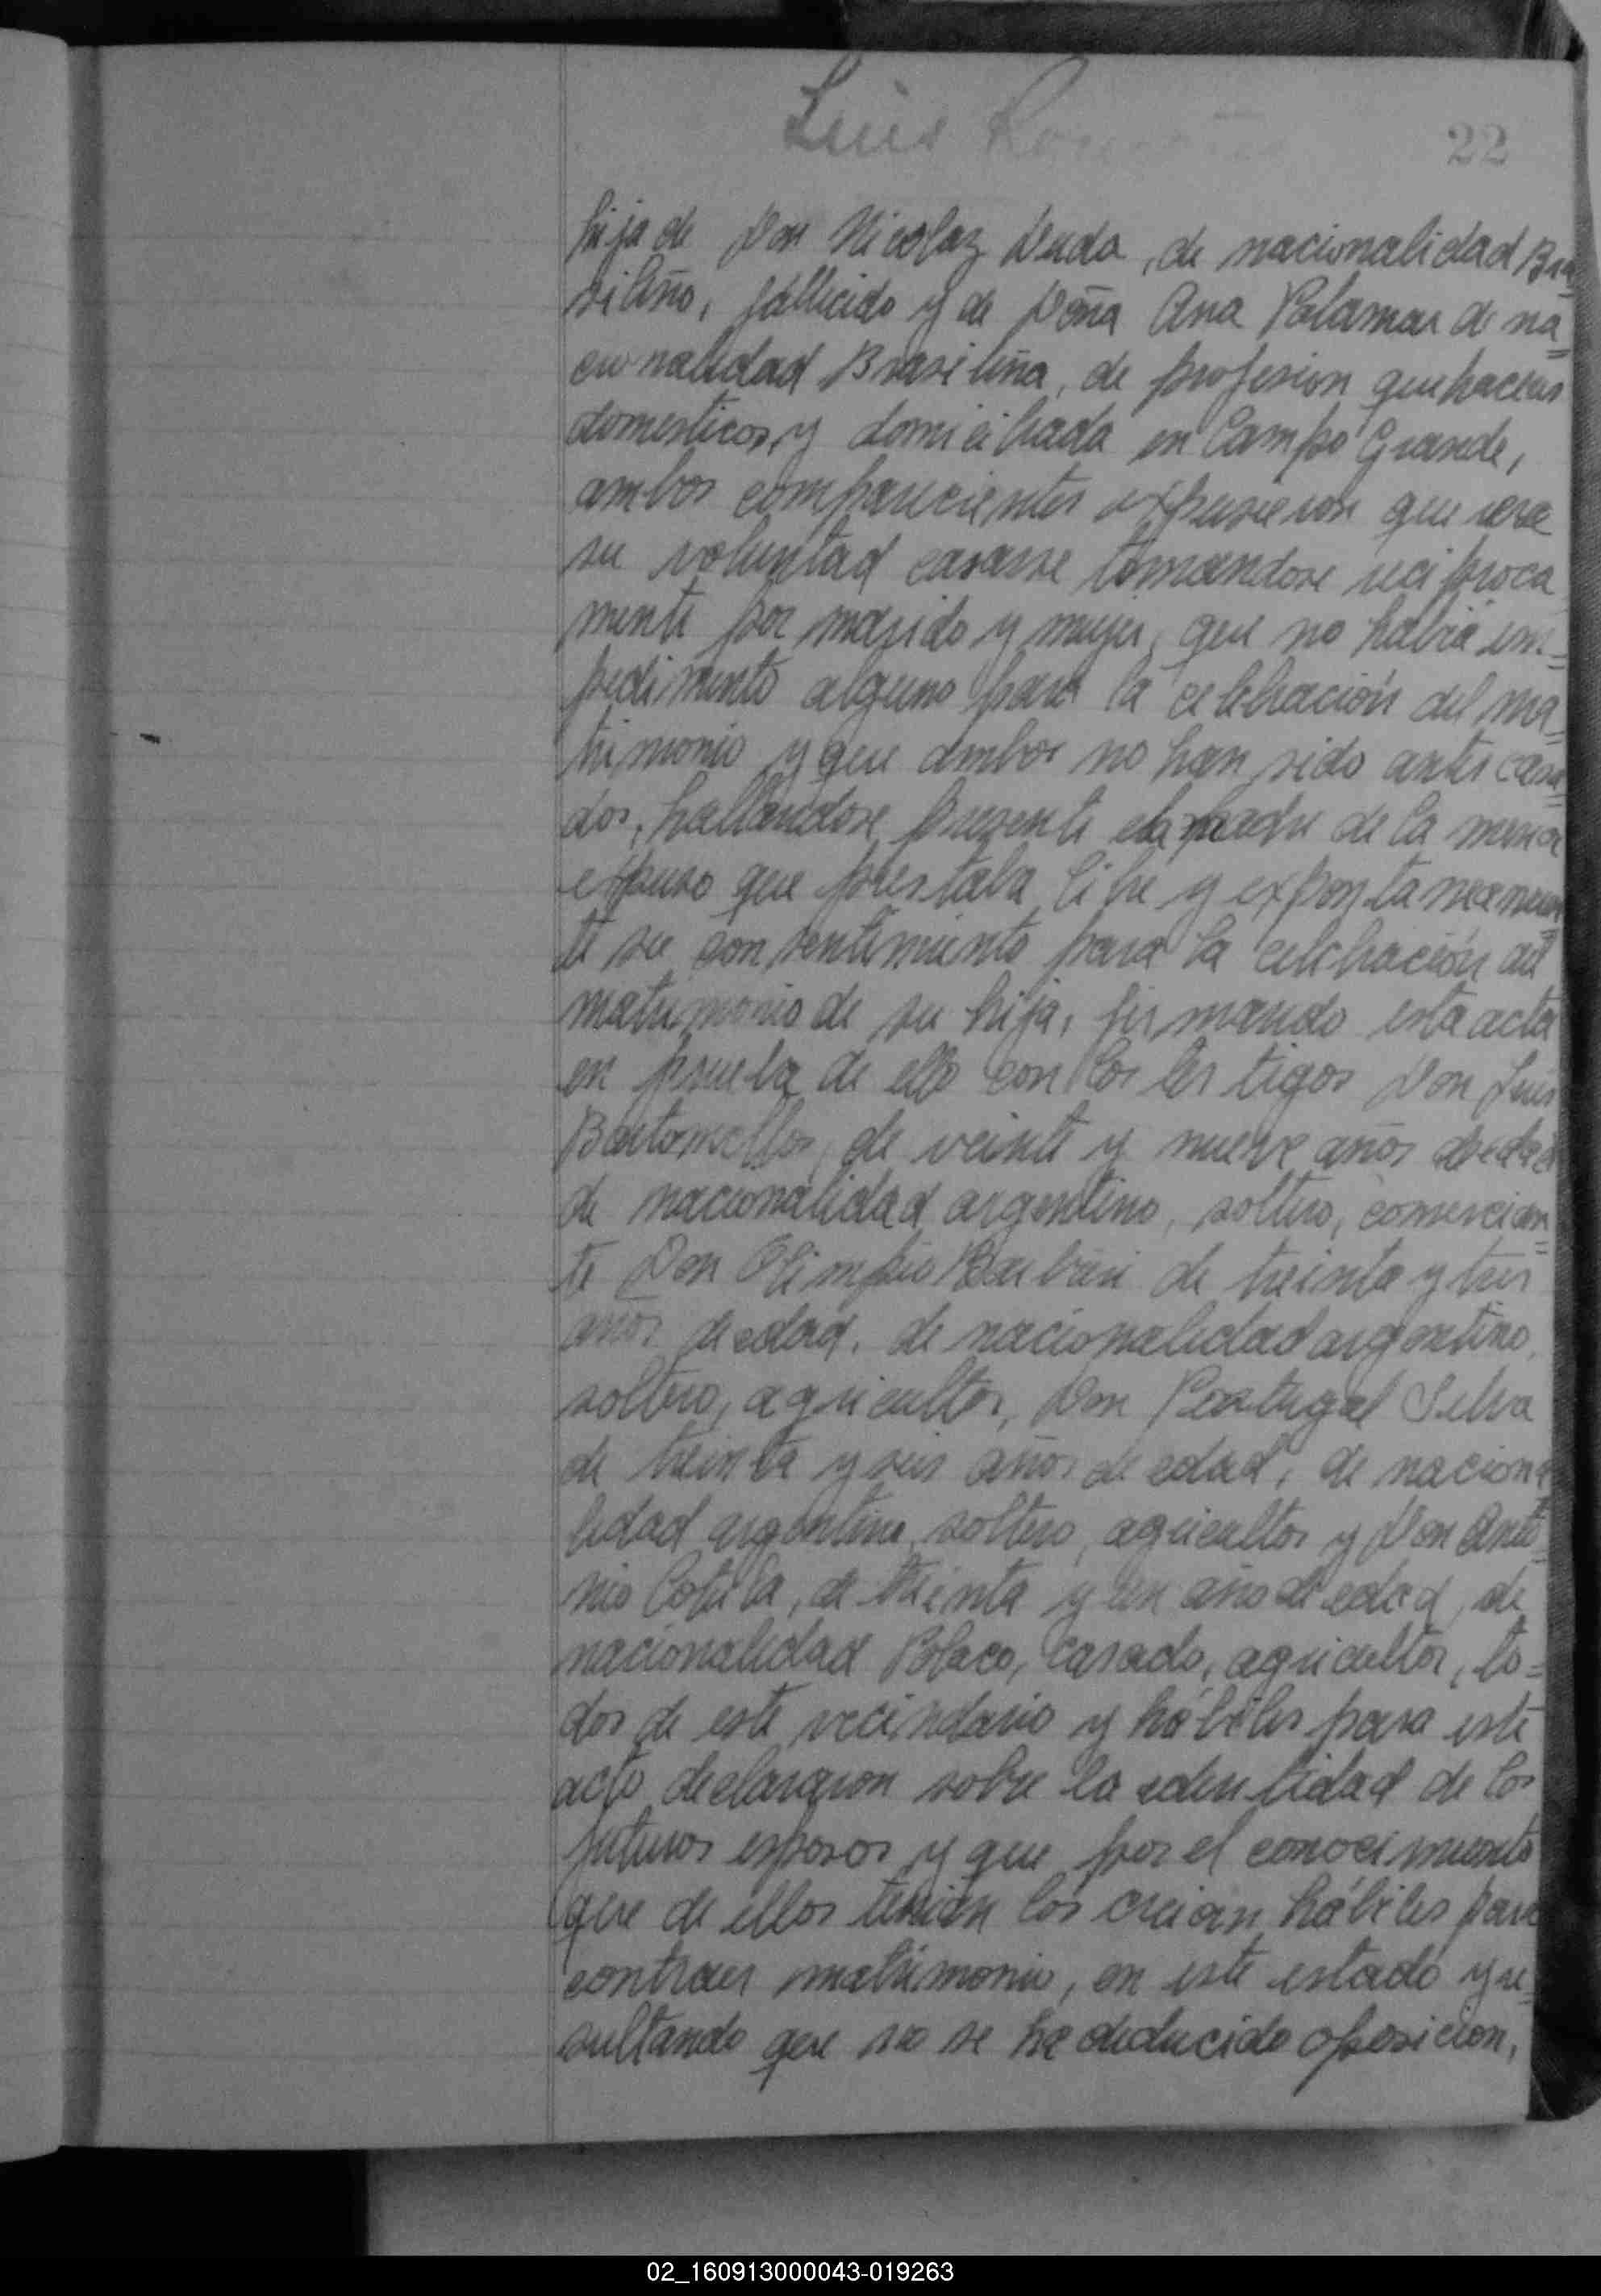 Luis
22
hija de Don Nicolaz Duda, de nacionalidad Bra
sileño, fallecido y de Doña Ana Palamar de na=
cionalidad Brasileña, de profesion quehaceres
domesticos, y domiciliada en Campo Grande,
ambos comparecientes expusieron que era
su voluntad casarse tomandose reciproca
mente por marido y mujer, que no habia im=
pedimento alguno para la celebración del ma=
trimonio y que ambos no han sido antes casa=
dos, hallandose presente la madre de la menor
expuso que prestaba libre y expontaneamen=
te su consentimiento para la celebración del
matrimonio de su hija, firmando esta acta
en prueba de ello con los testigos Don Luis
de veinte y nueve años de edad
de nacionalidad argentino, soltero, comercian=
te Don Olimpio de treinta y tres
años de edad, de nacionalidad argentino,
soltero, agricultor, Don Portugal Silva
de treinta y seis años de edad, de naciona
lidad argentino, soltero, agricultor y Don Anto=
nio de treinta y un año de edad, de
nacionalidad Polaco, casado, agricultor, to=
dos de este vecindario y hábiles para este
acto declararon sobre la identidad de los
futuros esposos y que por el conocimiento
que de ellos tenian los creian hábiles para
contraer matrimonio, en este estado y re=
sultando que no se ha deducido oposicion,
02_160913000043-019263